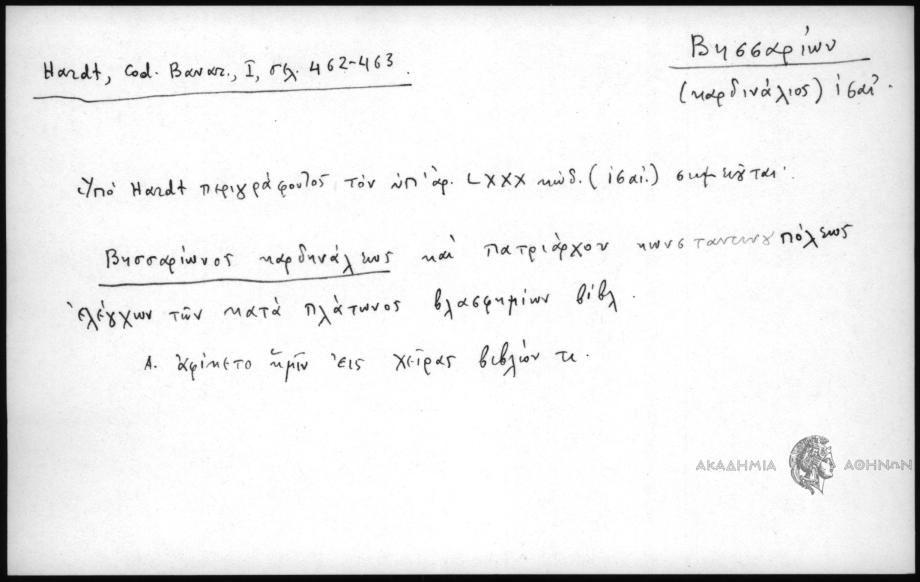 Βησσαρίων
Hardt, Cod. Bavar., I, σελ. 462-463.
(καρδινάλιος) ις αἰ.
Ὑπό Hardt περιγράφοντος τὸν ὑπ' ἀρ. LXXX κώδ. (ις αἰ.) σημειοῦται:
Βησσαρίωνος καρδηνάλεως καὶ πατριάρχου κωνσταντινουπόλεως
ἐλέγχων τῶν κατὰ πλάτωνος βλασφημίων βίβλ.
Α. ἀφίκετο ἡμῖν εἰς χεῖρας βιβλίον τι.
ΑΚΑΔΗΜΙΑ ΑΘΗΝΩΝ